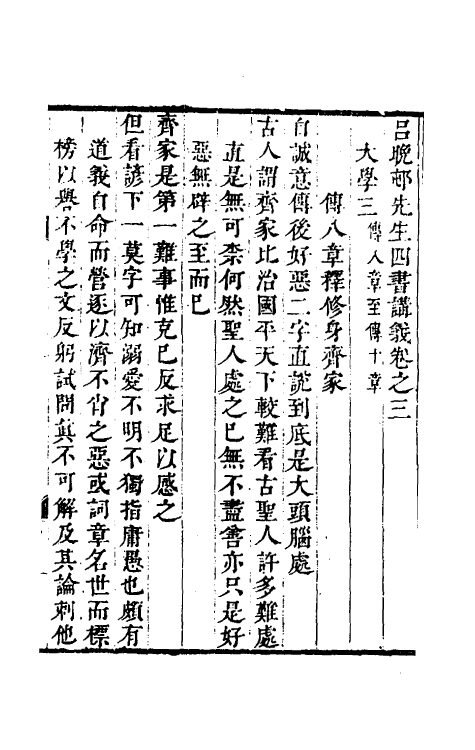 呂晚邨先生四書講義卷之三
大學三傳八章至傳十章
傳八章釋修身齊家
自誠意傳後好惡二字直說到底是大頭腦處
古人謂齊家比治國平天下較難看古聖人許多難處
直是無可柰何然聖人處之已無不盡善亦只是好
惡無辟之至而已
齊家是第一難事惟克己反求足以感之
但看諺下一莫字可知溺愛不明不獨指庸愚也頗有
道義自命而營逐以濟不肖之惡或詞章名世而標
榜以譽不學之文反躬試問眞不可解及其論刺他